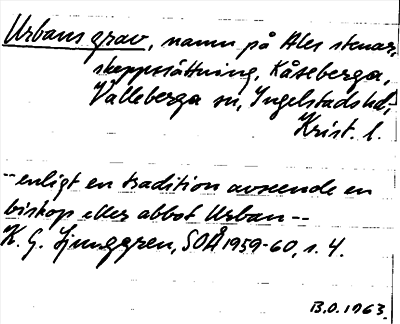 Urbans grav, namn på Ales stenar,
skeppssättning, Kåseberga,
Valleberga sn, Ingelstads hd,
Krist. l.
-- enligt en tradition avseende en
biskop eller abbot Urban --
K. G. Ljunggren, SOÅ 1959-60, s. 4.
B.O. 1963.